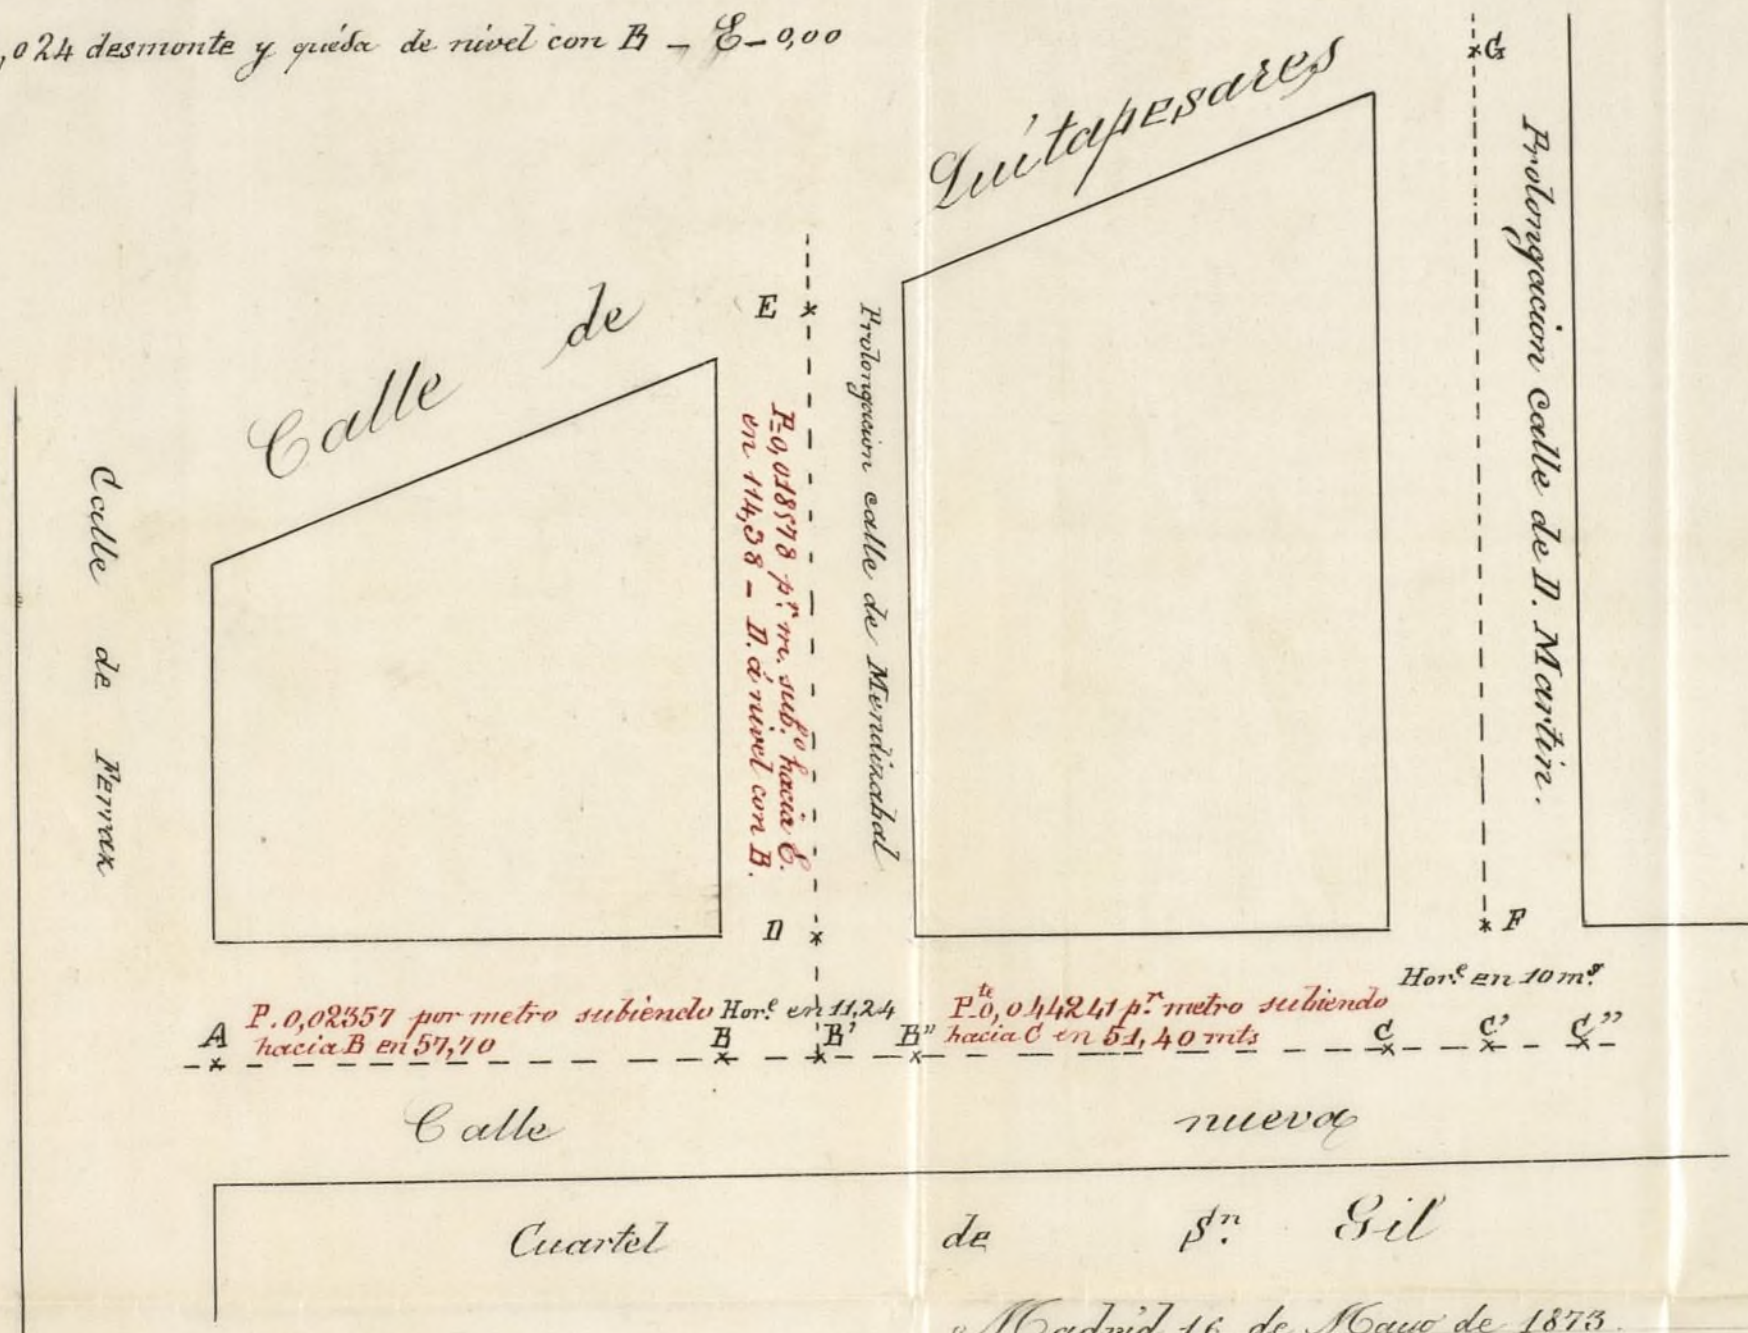 ,024 desmonte y quéda de nivel con B - E - 0,00
Calle de Quitapesares
G
Prolongacion calle de D. Martin.
E
Prolongacion calle de Mendizabal
P-0,018578 p.r m. sub.do hacia E.
en 114,38 - D. á nivel con B.
Calle de Ferraz
D
F
Hor.e en 10 m.s
P. 0,02357 por metro subiendo
hacia B en 57,70
Hor.e en 11,24
P.te 0,044241 p.r metro subiendo
hacia C en 51,40 mts
A B B' B" C C' C"
Calle nueva
Cuartel de S.n Gil
Madrid 16 de Mayo de 1873.